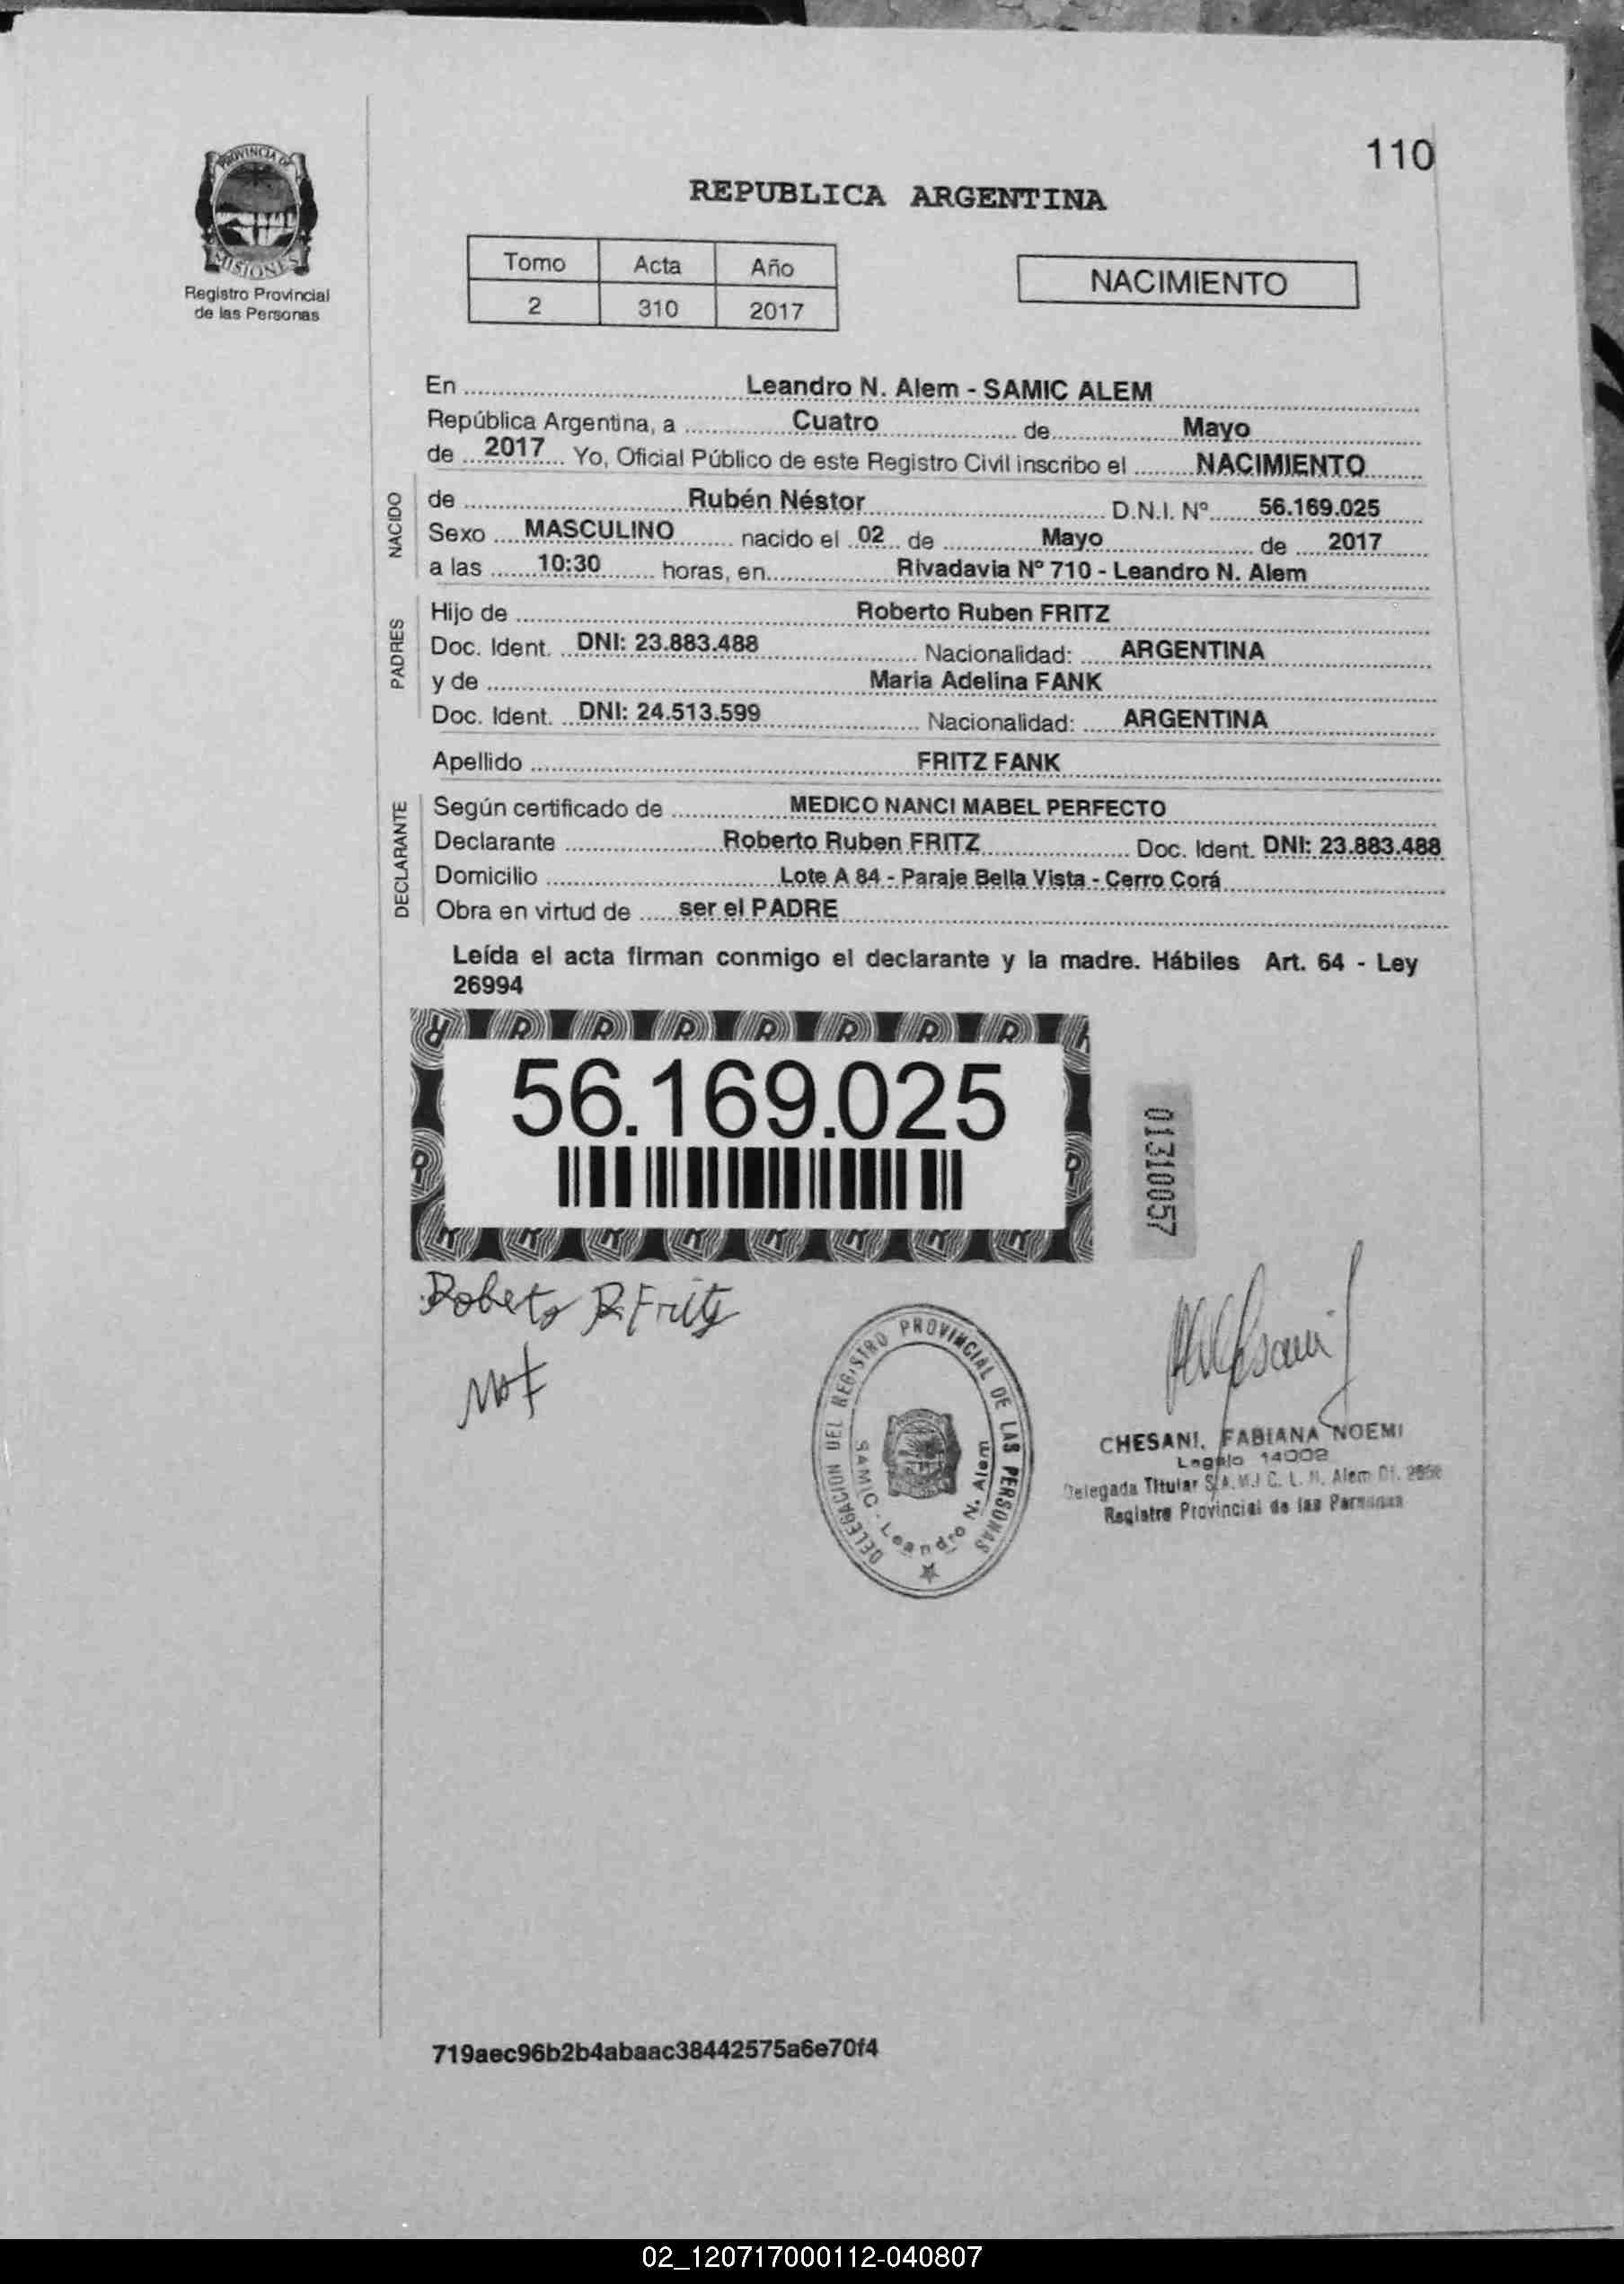 110
PROVINCIA DE
MISIONES
Registro Provincial
de las Personas
REPUBLICA ARGENTINA
Tomo Acta Año
2 310 2017
NACIMIENTO
En Leandro N. Alem - SAMIC ALEM
República Argentina, a Cuatro de Mayo
de 2017 Yo, Oficial Público de este Registro Civil inscribo el NACIMIENTO
NACIDO
de Rubén Néstor D.N.I. Nº 56.169.025
Sexo MASCULINO nacido el 02 de Mayo de 2017
a las 10:30 horas, en Rivadavia Nº 710 - Leandro N. Alem
PADRES
Hijo de Roberto Ruben FRITZ
Doc. Ident. DNI: 23.883.488 Nacionalidad: ARGENTINA
y de Maria Adelina FANK
Doc. Ident. DNI: 24.513.599 Nacionalidad: ARGENTINA
Apellido FRITZ FANK
DECLARANTE
Según certificado de MEDICO NANCI MABEL PERFECTO
Declarante Roberto Ruben FRITZ Doc. Ident. DNI: 23.883.488
Domicilio Lote A 84 - Paraje Bella Vista - Cerro Corá
Obra en virtud de ser el PADRE
Leída el acta firman conmigo el declarante y la madre. Hábiles Art. 64 - Ley
26994
56.169.025
01310057
Roberto R Fritz
DELEGACION DEL REGISTRO PROVINCIAL DE LAS PERSONAS
SAMIC - Leandro N. Alem
CHESANI, FABIANA NOEMI
Legajo 14002
Delegada Titular S.A.M.I.C. L. N. Alem
Registro Provincial de las Personas
719aec96b2b4abaac38442575a6e70f4
02_120717000112-040807